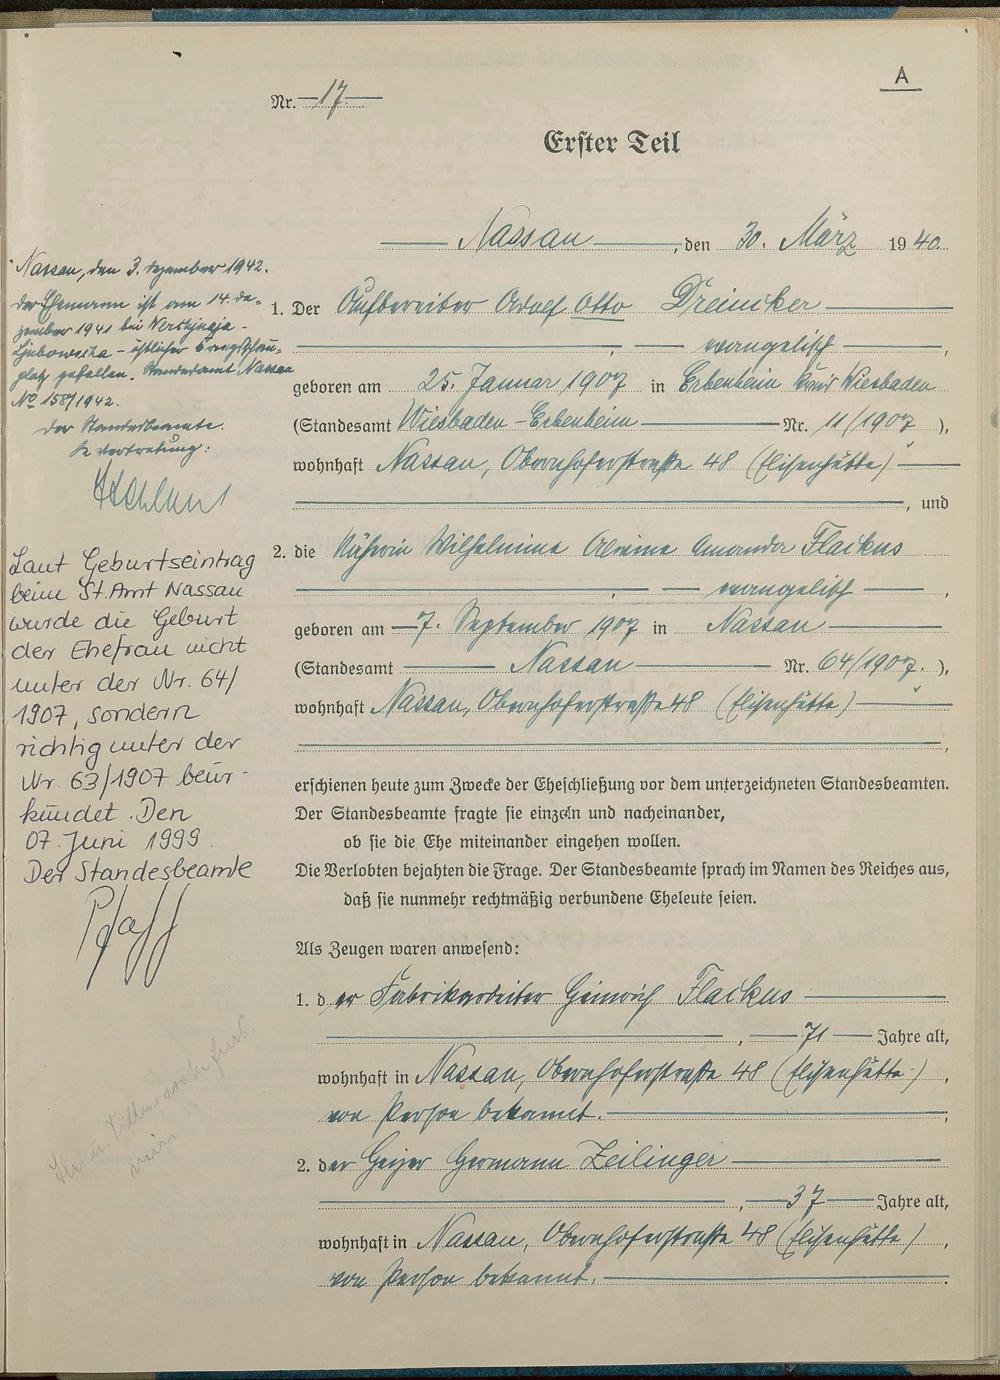 A
Nr. 17
Erster Teil
Nassau, den 30. März 1940.
1. Der Aufbereiter Adolf Otto Dreincker
evangelisch,
geboren am 25. Januar 1907 in Erbenheim Kreis Wiesbaden
(Standesamt Wiesbaden-Erbenheim Nr. 11/1907),
wohnhaft Nassau, Obernhoferstraße 48 (Elisenhütte)
, und
2. die Näherin Wilhelmine Amanda Flackus
evangelisch,
geboren am 7. September 1907 in Nassau
(Standesamt Nassau Nr. 64/1907.),
wohnhaft Nassau, Obernhoferstraße 48 (Elisenhütte)
,
erschienen heute zum Zwecke der Eheschließung vor dem unterzeichneten Standesbeamten.
Der Standesbeamte fragte sie einzeln und nacheinander,
ob sie die Ehe miteinander eingehen wollen.
Die Verlobten bejahten die Frage. Der Standesbeamte sprach im Namen des Reiches aus,
daß sie nunmehr rechtmäßig verbundene Eheleute seien.
Als Zeugen waren anwesend:
1. der Fabrikarbeiter Heinrich Flackus
, 71 Jahre alt,
wohnhaft in Nassau, Obernhoferstraße 48 (Elisenhütte),
von Person bekannt.
2. der Heizer Hermann Zeilinger
, 37 Jahre alt,
wohnhaft in Nassau, Obernhoferstraße 48 (Elisenhütte),
von Person bekannt.
Nassau, den 3. Dezember 1942.
Der Ehemann ist am 14. De-
zember 1941 bei
- östlicher Kriegsschau-
platz gefallen. Standesamt Nassau
No 158/1942.
Der Standesbeamte.
In Vertretung:
Laut Geburtseintrag
beim St.Amt Nassau
wurde die Geburt
der Ehefrau nicht
unter der Nr. 64/
1907, sondern
richtig unter der
Nr. 63/1907 beur-
kundet. Den
07. Juni 1999
Der Standesbeamte
Pfaff